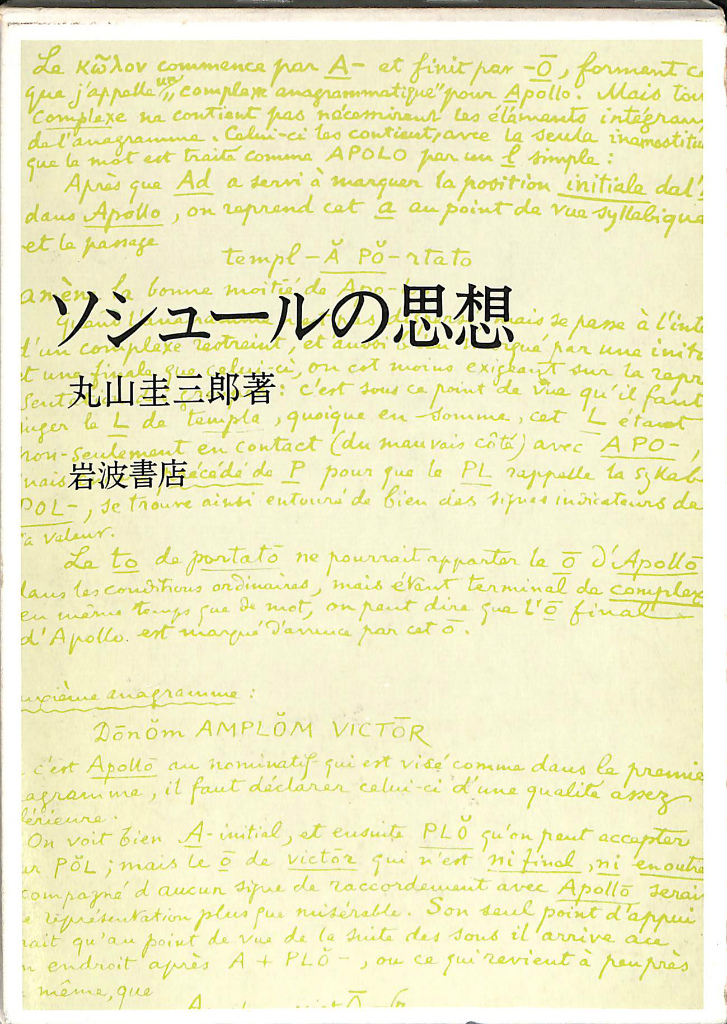 Le κῶλον commence par A- et finit par -Ō, forment c
que j'appelle un "complexe anagrammatique" pour Apollo. Mais tou
complexe ne contient pas nécessairement les éléments intégran
de l'anagramme. Celui-ci les contient, avec la seule
que le mot est traité comme APOLO par un l simple :
Après que Ad a servi à marquer la position initiale de l'
dans Apollo, on reprend cet a au point de vue syllabique
et le passage
templ-Ă PŎ-rtato
la bonne moitié de Apo-
ソシュールの思想
mais se passe à l'int
d'un complexe restreint, et aussi par une initi
et une finale que celui-ci, on est moins exigeant sur la repr
丸山圭三郎著
: c'est sous ce point de vue qu'il faut
le L de templa, quoique en somme, cet L étant
non-seulement en contact (du mauvais côté) avec APO-,
岩波書店
mais précédé de P pour que le PL rappelle la syllab-
POL-, se trouve ainsi entouré de bien des signes indicateurs de
sa valeur.
Le to de portatō ne pourrait apporter le ō d'Apollō
dans les conditions ordinaires, mais étant terminal de complexe
en même temps que de mot, on peut dire que l'ō final
d'Apollo est marqué d'avance par cet ō.
uxième anagramme :
Dōnŏm AMPLŎM VICTŌR
c'est Apollō au nominatif qui est visé comme dans le premie
agramme, il faut déclarer celui-ci d'une qualité assez
érieure.
On voit bien A-initial, et ensuite PLŎ qu'on peut accepter
ur PŎL ; mais le ō de victōr qui n'est ni final, ni en outre
compagné d'aucun signe de raccordement avec Apollō serai
e représentation plus que misérable. Son seul point d'appui
rait qu'au point de vue de la suite des sons il arrive au
n endroit après A + PLŎ-, ou ce qui revient à peu près
même, que